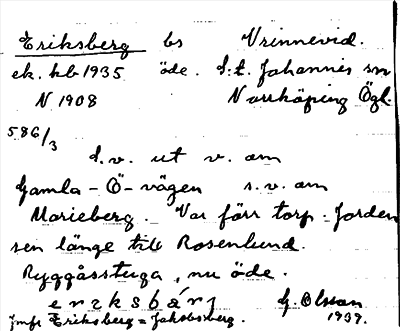 Eriksberg bs Vrinnevid.
ek. kb 1935 öde. S:t. Johannis sn
N 1908 Norrköping Ögl.
586/3
S.v. ut v. om
Gamla-Ö-vägen s.v. om
Marieberg. Var förr torp. Jorden
sen länge till Rosenlund.
Ryggåsstuga, nu öde.
G. Olsson
jmfr Eriksberg = Jakobsberg. 1939.